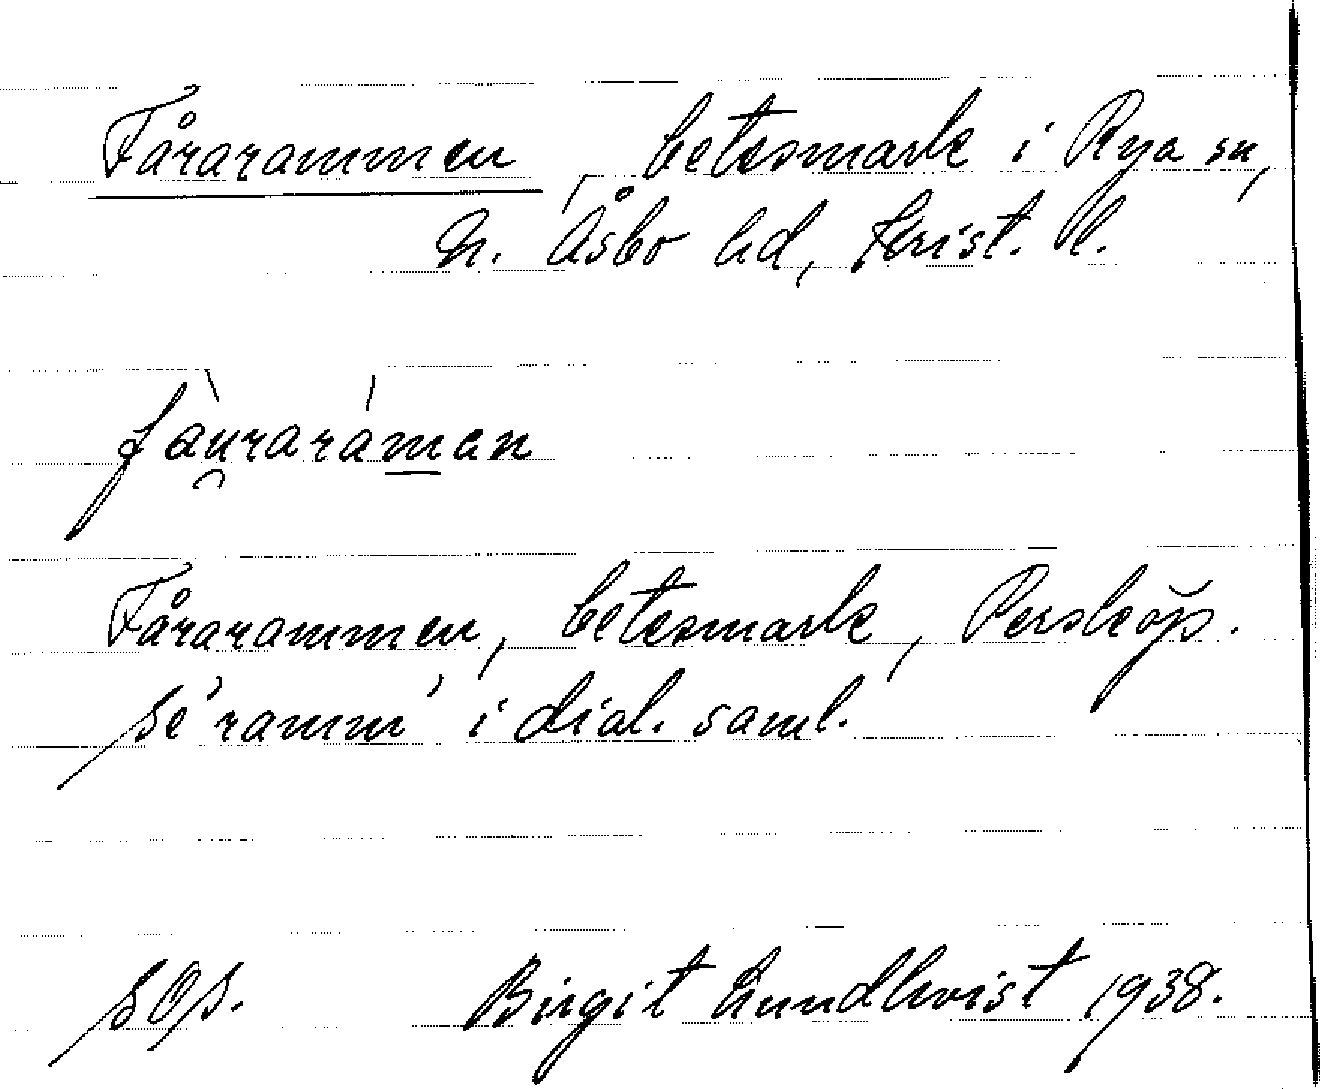 Fårarammen, betesmark i Rya sn,
N. Åsbo hd, Krist. l.
fàu̯raráman
Fårarammen, betesmark, Persköp.
Se 'ramm' i dial. saml.
Birgit Lundkvist 1938.